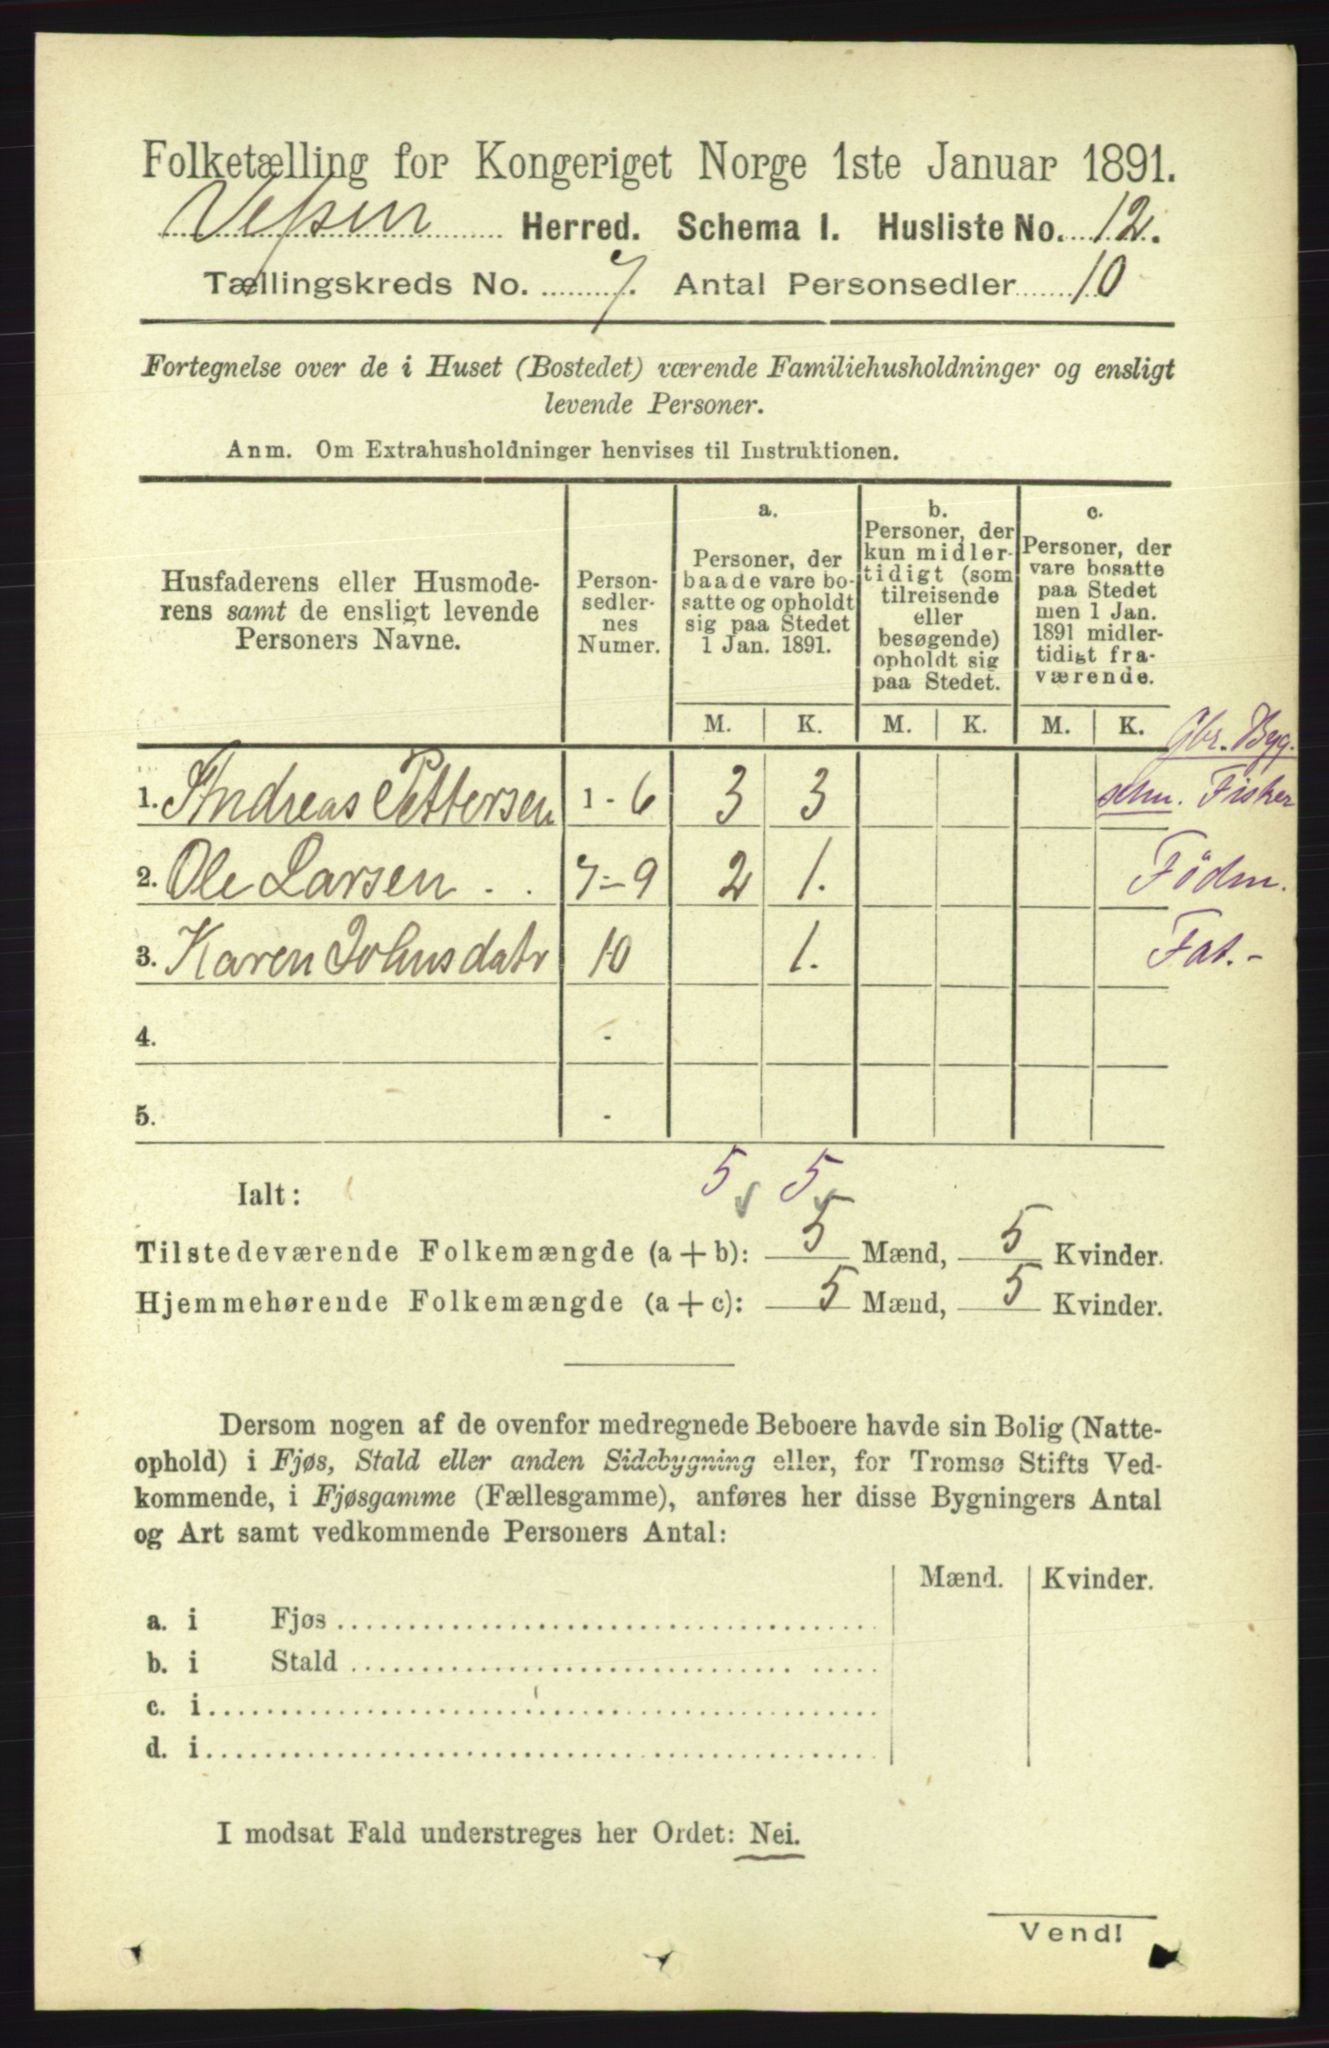 Folketælling for Kongeriget Norge 1ste Januar 1891.
Vefsen Herred. Schema I. Husliste No. 12.
Tællingskreds No. 7. Antal Personsedler 10
Fortegnelse over de i Huset (Bostedet) værende Familiehusholdninger og ensligt
levende Personer.
Anm. Om Extrahusholdninger henvises til Instruktionen.
Husfaderens eller Husmode-
rens samt de ensligt levende
Personers Navne.
Person-
sedler-
nes
Numer.
a.
Personer, der
baade vare bo-
satte og opholdt
sig paa Stedet
1 Jan. 1891.
b.
Personer, der
kun midler-
tidigt (som
tilreisende
eller
besøgende)
opholdt sig
paa Stedet.
c.
Personer, der
vare bosatte
paa Stedet
men 1 Jan.
1891 midler-
tidigt fra-
værende.
M. K. M. K. M. K.
Gbr. Byg.
1. Andreas Pettersen 1 - 6 3 3 selm. Fisker
2. Ole Larsen . . 7-9 2 1. Födm.
3. Karen Johnsdatr 10 1. Fat. -
4. -
5. -
Ialt: 5 5
Tilstedeværende Folkemængde (a + b): 5 Mænd, 5 Kvinder.
Hjemmehørende Folkemængde (a + c): 5 Mænd, 5 Kvinder.
Dersom nogen af de ovenfor medregnede Beboere havde sin Bolig (Natte-
ophold) i Fjøs, Stald eller anden Sidebygning eller, for Tromsø Stifts Ved-
kommende, i Fjøsgamme (Fællesgamme), anføres her disse Bygningers Antal
og Art samt vedkommende Personers Antal:
Mænd. Kvinder.
a. i Fjøs
b. i Stald
c. i
d. i
I modsat Fald understreges her Ordet: Nei.
Vend!